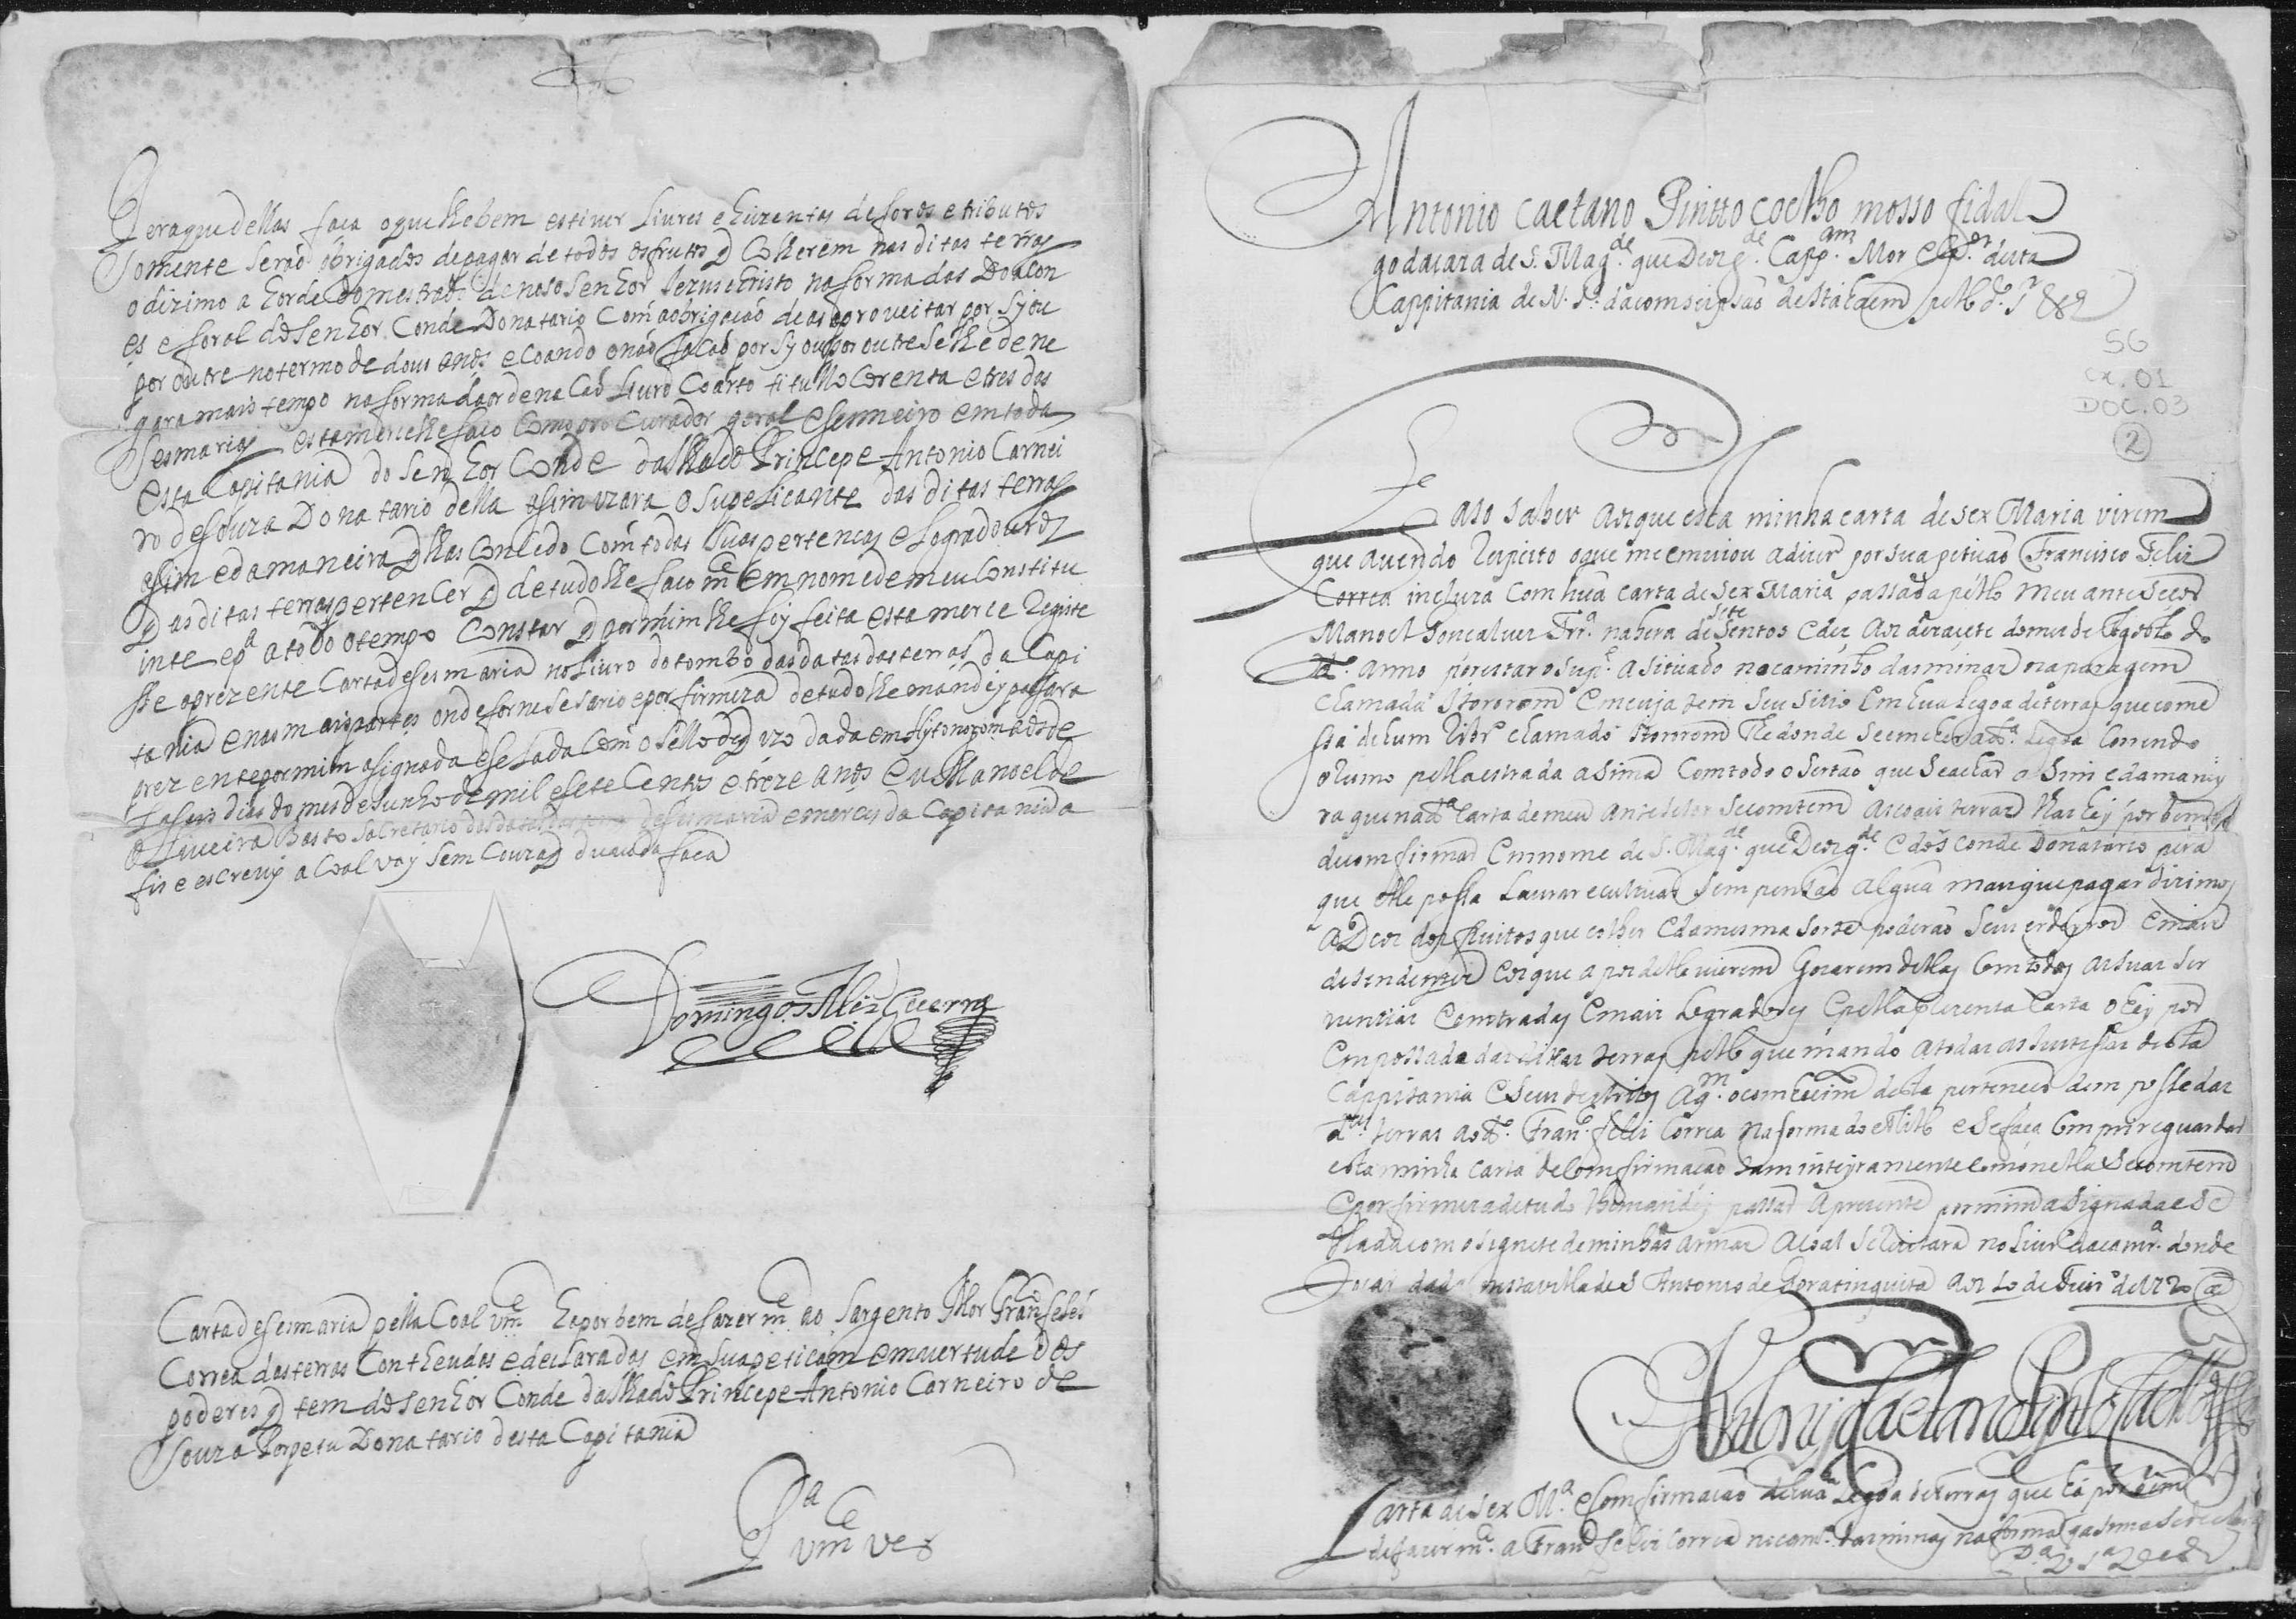 Peraque dellas faca oque lhe bem estiver Livres e hizentas de foros e tributos
Somente serão obrigados de pagar de todos os frutos q Colherem nas ditas terras
o dizimo a hordem do mestrado de noso Senhor Jezus christo na forma das Doacon
es e foral do Senhor Conde Donatario Com aobrigacão de as aproveitar por Sy ou
por outre no termo de dous anos e Coando o não facão por Sy ou por outre se lhe dene
gara mais tempo na forma da ordenacão Livro Coarto titullo Corenta e tres das
Sesmarias esta merce lhe faco Como pro Curador geral e semeiro em toda
esta Capitania do Senhor Conde da Ilha do Princepe Antonio Carnei
ro de Souza Dona tario della asim uzara o Supelicante das ditas terras
asim e da maneira q lhas Concedo Com todas suas pertencas e Logradouros
q as ditas terras pertencer q de tudo lhe faco m.ce em nome de meu Constitu
inte e p.a a todo o tempo Constar q por mim lhe foy feita esta merce Registe
sse a prezente Carta de sesmaria no Livro do tombo das datas das terras da Capi
tania e nas mais partes onde for nesesario e por firmeza de tudo lhe mandey passar a
prezente por mim asignada e sellada Com o sello de q uzo dada em
aseis dias do mes de Junho de mil e sete Centos e treze anos eu Manoel de
Oliveira Basto Sacretario das datas de sesmaria e merces da Capitania a
fis e escrevy a Coal vay sem Couza q duvida faca
Domingos Alz Guerra
Carta de sesmaria pella Coal vm.ce ha por bem de fazer m.ce ao Sargento Mor Fran.co feles
Correa das terras Contheudas e declaradas em sua peticam em vertude dos
poderes q tem do Senhor Conde da Ilha do Princepe Antonio Carneiro de
Souza Perpetu Dona tario desta Capitania
P.a
vm.ce ver
Antonio Caetano Pintto coelho mosso fidal
go da caza de S. Mag.de que Deos g.de Capp.am Mor e G.or desta
Cappitania de N. S.ra da comseipsão de Itanhaem pello d.o S.r &.a
SG
cx. 01
DOC. 03
2
Faso saber aos que esta minha carta de sex Maria virem
que avendo Respeito aque me emviou adizer por sua petisão Francisco Feliz
Correa inclusa Com huã carta de sex Maria passada pello meu antesecor
Manoel Goncalves Frr.a na hera de sete sentos e des aos dezacete do mes de Agosto do
d.o anno por estar o sup.e asituado no caminho das minas na paragem
chamada Itororom e meuja tem seu sitio em hua Legoa de terras que come
ssa de hum Rib.ro chamado Itororom the donde se emcher a d.a Legoa Correndo
o Rumo pella estrada asima Com todo o sertão que se achar asim e da maney
ra que na d.a Carta de meu antesesor se comtem as coais terras lhas hey por bem
de comfirmar em nome de S. Mag.de que Deos g.de e do S.r Conde Donatario pera
que elle possa Lavrar e cultivar sem penssão alguã mais que pagar dizimos
a Deos dos fruitos que colher e da mesma sorte poderão seus erdeyros e mais
desendentes e os que apos delle vierem Gozarem dellas Com todas as suas ser
ventias e emtradas e mais Logradoros e pella prezente Carta o hey por
empossado das ditas terras pello que mando a todas as Justissas desta
Cappitania e seus destritos a q.m o comhesim.to desta pertenecer dem posse das
d.tas terras ao d.o Fran.co feliz Correa na forma do estillo e se faca Comprir e guardar
esta minha Carta de Comfirmacão tam inteyramente como nella se comtem
e por firmeza de tudo lhe mandey passar a prezente por mim asignada e se
llada com o signete de minhas armas a coal se Rezistara no Livro da camr.a donde
tocar dada nesta villa de S Antonio de Goratinguita aos 10 de Feir.o de 1720 a.s
Antonio Caetano Pinto Coelho
Carta de Sex M.a e Comfirmacão de huã Legoa de terras que ha por bem
de fazer m.ce a Fran.co feliz Correa no cam.o das minas na forma q asima se declara